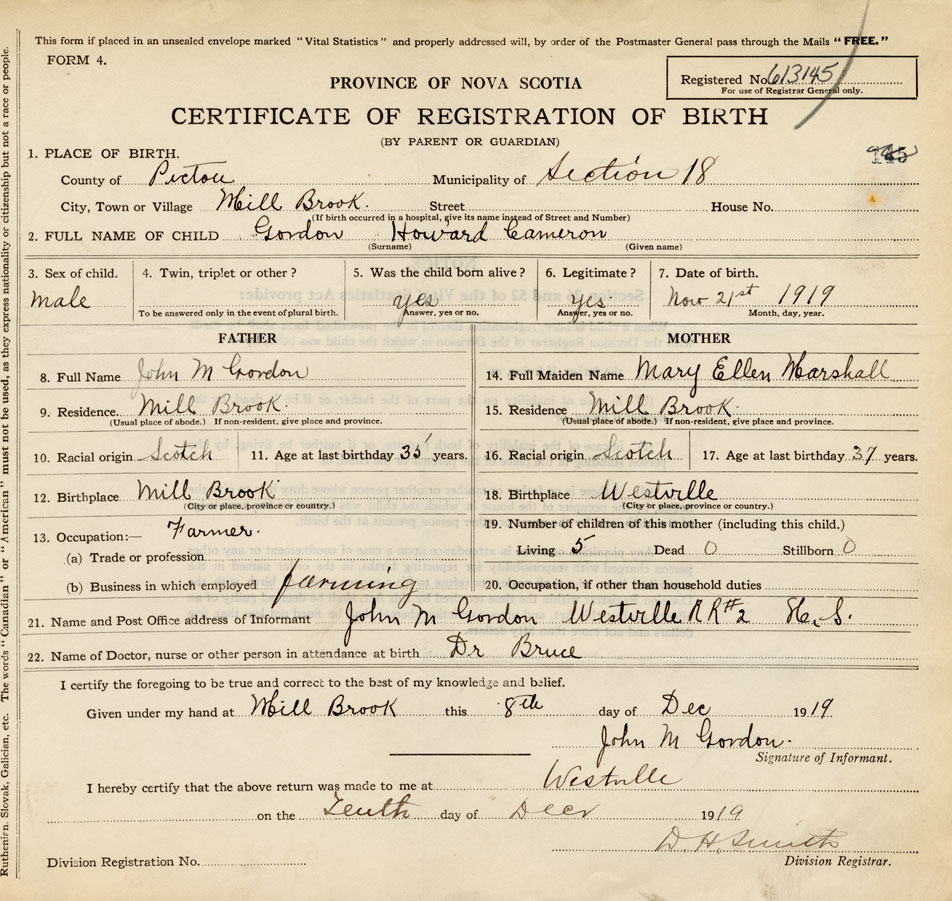 This form if placed in an unsealed envelope marked "Vital Statistics" and properly addressed will, by order of the Postmaster General pass through the Mails "FREE."
FORM 4.
Registered No. 613145
For use of Registrar General only.
PROVINCE OF NOVA SCOTIA
CERTIFICATE OF REGISTRATION OF BIRTH
(BY PARENT OR GUARDIAN)
1. PLACE OF BIRTH.
County of Pictou Municipality of Section 18
City, Town or Village Mill Brook. Street House No.
(If birth occurred in a hospital, give its name instead of Street and Number)
2. FULL NAME OF CHILD Gordon Howard Cameron
(Surname) (Given name)
3. Sex of child. 4. Twin, triplet or other? 5. Was the child born alive? 6. Legitimate? 7. Date of birth.
male yes yes Nov 21st 1919
To be answered only in the event of plural birth. Answer, yes or no. Answer, yes or no. Month, day, year.
FATHER MOTHER
8. Full Name John M Gordon 14. Full Maiden Name Mary Ellen Marshall
9. Residence. Mill Brook. 15. Residence Mill Brook.
(Usual place of abode.) If non-resident, give place and province. (Usual place of abode.) If non-resident, give place and province.
10. Racial origin Scotch 11. Age at last birthday 35 years. 16. Racial origin Scotch 17. Age at last birthday 37 years.
12. Birthplace Mill Brook 18. Birthplace Westville
(City or place, province or country.) (City or place, province or country.)
13. Occupation:— Farmer. 19. Number of children of this mother (including this child.)
(a) Trade or profession Living 5 Dead 0 Stillborn 0
(b) Business in which employed farming 20. Occupation, if other than household duties
21. Name and Post Office address of Informant John M Gordon Westville RR#2 N.S.
22. Name of Doctor, nurse or other person in attendance at birth Dr Bruce
I certify the foregoing to be true and correct to the best of my knowledge and belief.
Given under my hand at Mill Brook this 8th day of Dec 1919
John M Gordon.
Signature of Informant.
I hereby certify that the above return was made to me at Westville
on the Tenth day of Decr 1919
D. H. Smith
Division Registrar.
Division Registration No.
Ruthenian, Slovak, Galician, etc. The words "Canadian" or "American" must not be used, as they express nationality or citizenship but not a race or people.